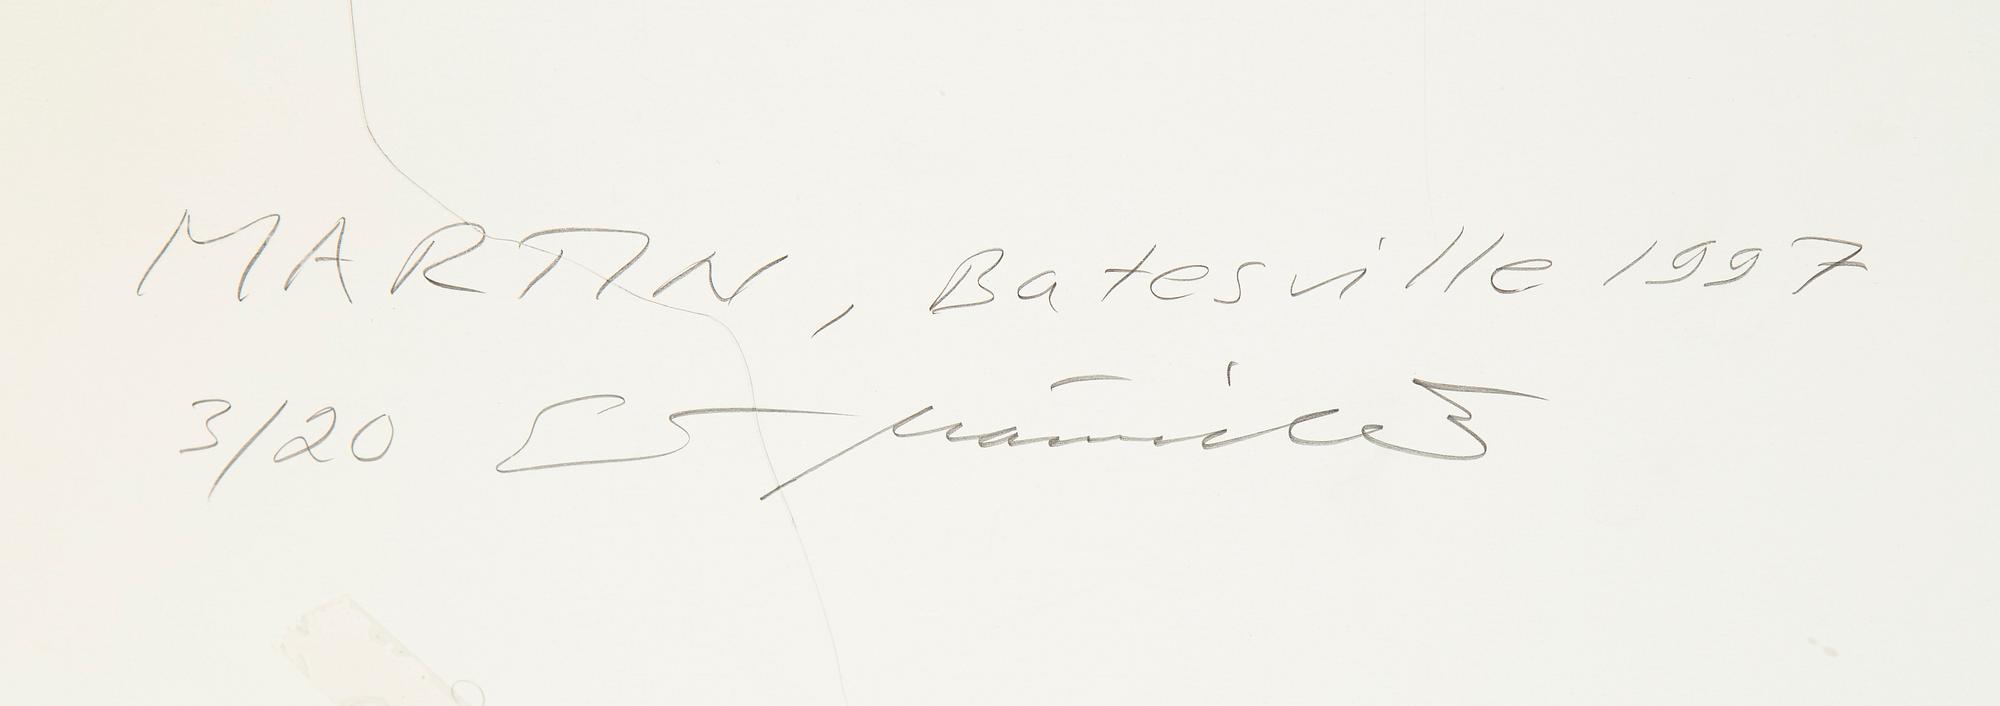 MARTIN, Batesville 1997
3/20